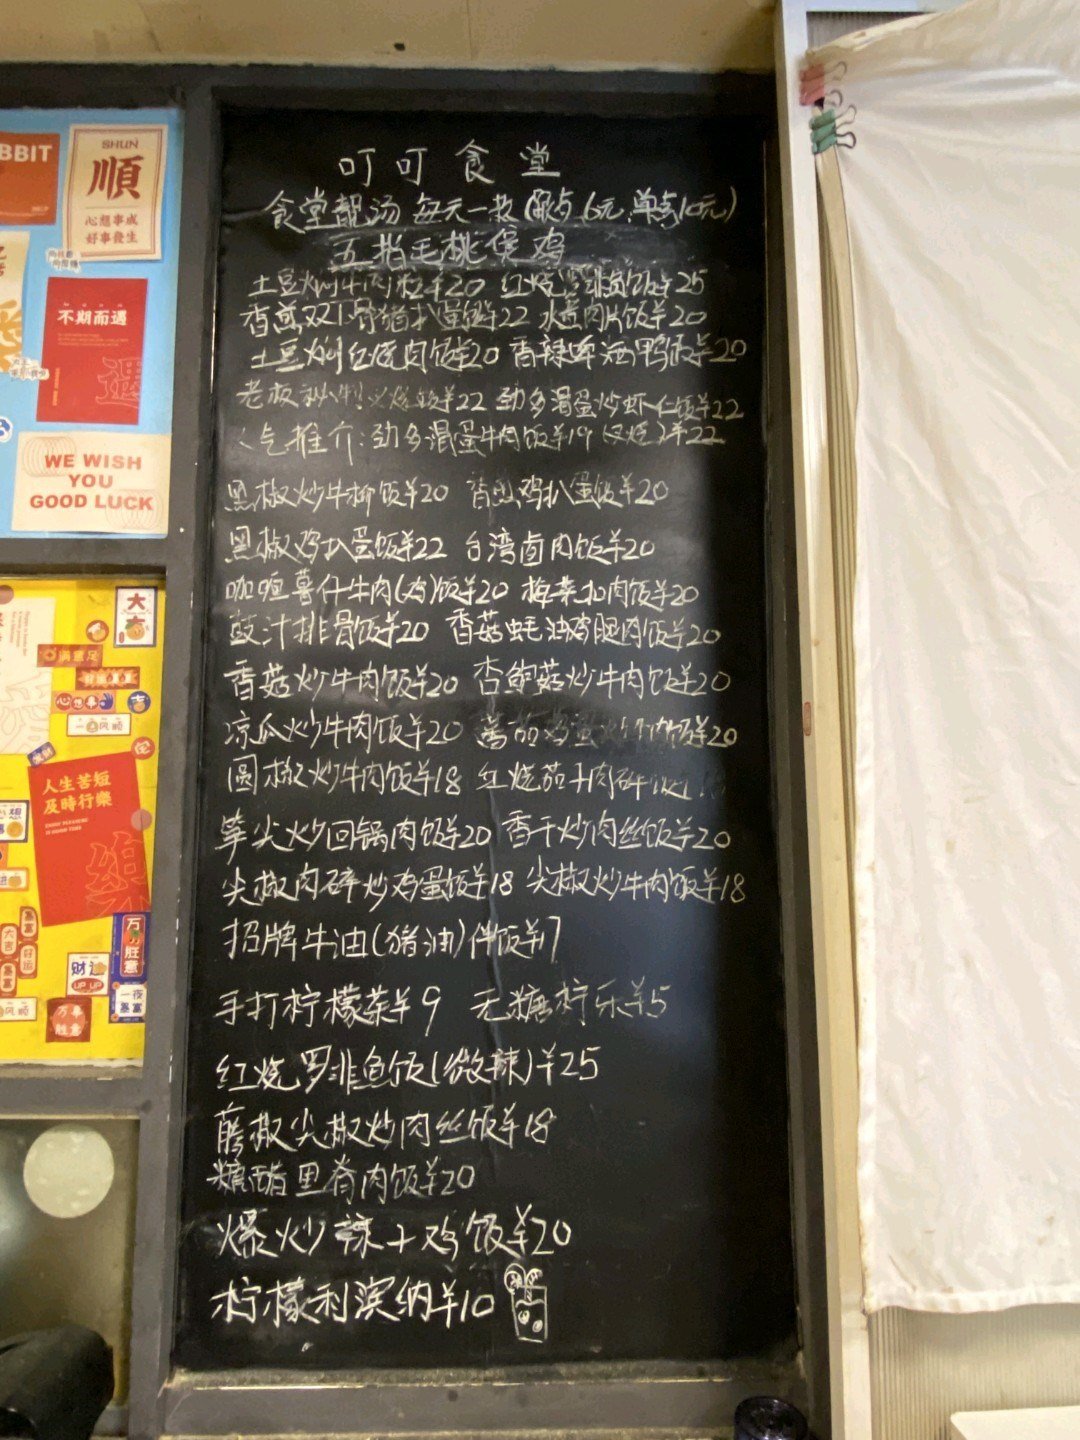 叮叮食堂
食堂靓汤 每天一款 6元,单点10元)
五指毛桃煲鸡
土豆焖牛肉粒¥20 红烧罗非鱼饭¥25
香煎双T骨猪扒蛋饭¥22 水煮肉片饭¥20
土豆焖红烧肉饭¥20 香辣啤酒鸭饭¥20
老板秘制叉烧饭¥22 劲多滑蛋炒虾仁饭¥22
人气推介:劲多滑蛋牛肉饭¥19 叉烧 ¥22
黑椒炒牛柳饭¥20 香煎鸡扒蛋饭¥20
黑椒鸡扒蛋饭¥22 台湾卤肉饭¥20
咖喱薯仔牛肉(鸡)饭¥20 梅菜扣肉饭¥20
豉汁排骨饭¥20 香菇蚝油鸡腿肉饭¥20
香菇炒牛肉饭¥20 杏鲍菇炒牛肉饭¥20
凉瓜炒牛肉饭¥20 蕃茄鸡蛋炒牛肉饭¥20
圆椒炒牛肉饭¥18 红烧茄子肉碎饭
笋尖炒回锅肉饭¥20 香干炒肉丝饭¥20
尖椒肉碎炒鸡蛋饭¥18 尖椒炒牛肉饭¥18
招牌牛油(猪油)伴饭¥17
手打柠檬茶¥9 无糖柠乐¥5
红烧罗非鱼饭(微辣)¥25
藤椒尖椒炒肉丝饭¥18
糖醋里脊肉饭¥20
爆炒辣子鸡饭¥20
柠檬利滨纳¥10
BBIT
SHUN
順
心想事成
好事發生
不期而遇
WE WISH
YOU
GOOD LUCK
大吉
满意足
心想事
吉
一 风顺
发财
人生苦短
及時行樂
ENJOY PLEASURE
IN GOOD TIME
大吉
暴富
好运
暴富
财运
UP UP
万事胜意
一夜暴富
万事胜意
风顺